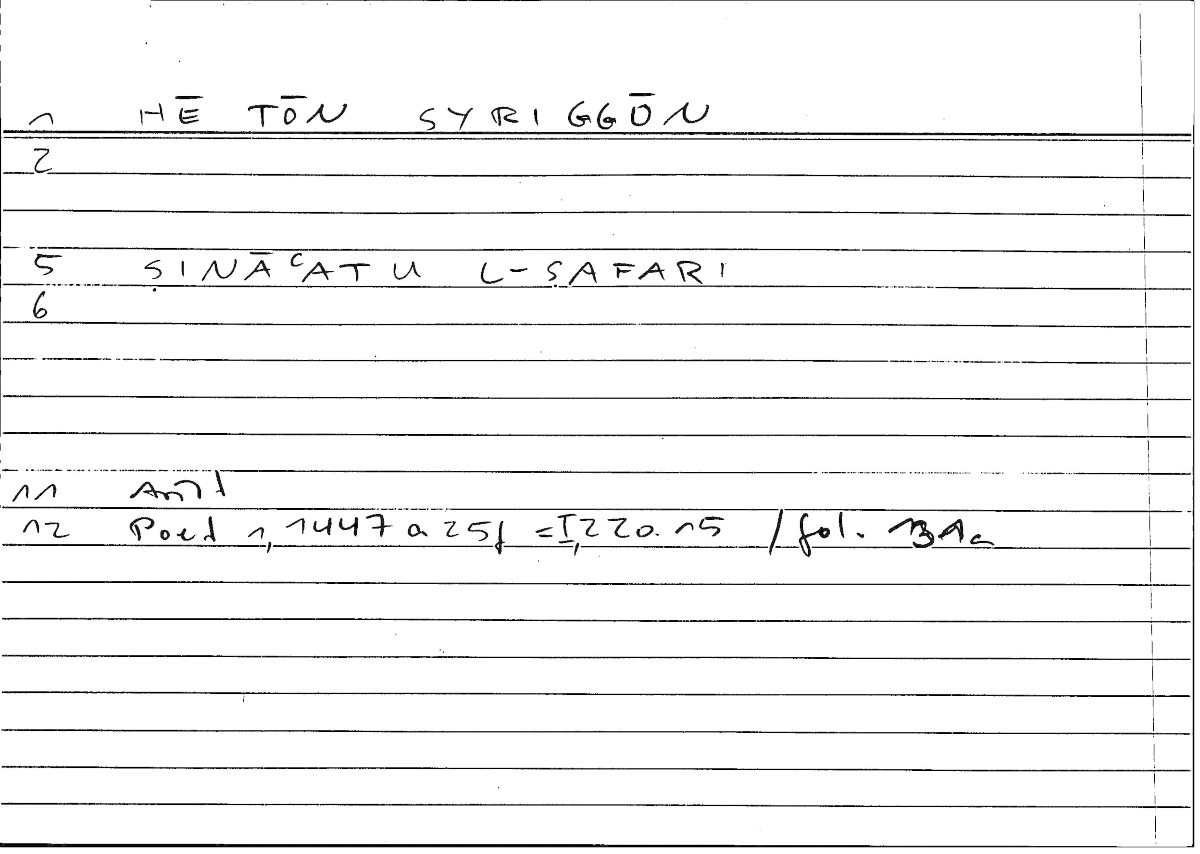 1 HĒ TŌN SYRIGGŌN
2
5 ṢINĀʿATU L-SAFARI
6
11 Arist
12 Poet 1, 1447 a 25f = I,220.15 / fol. 131a